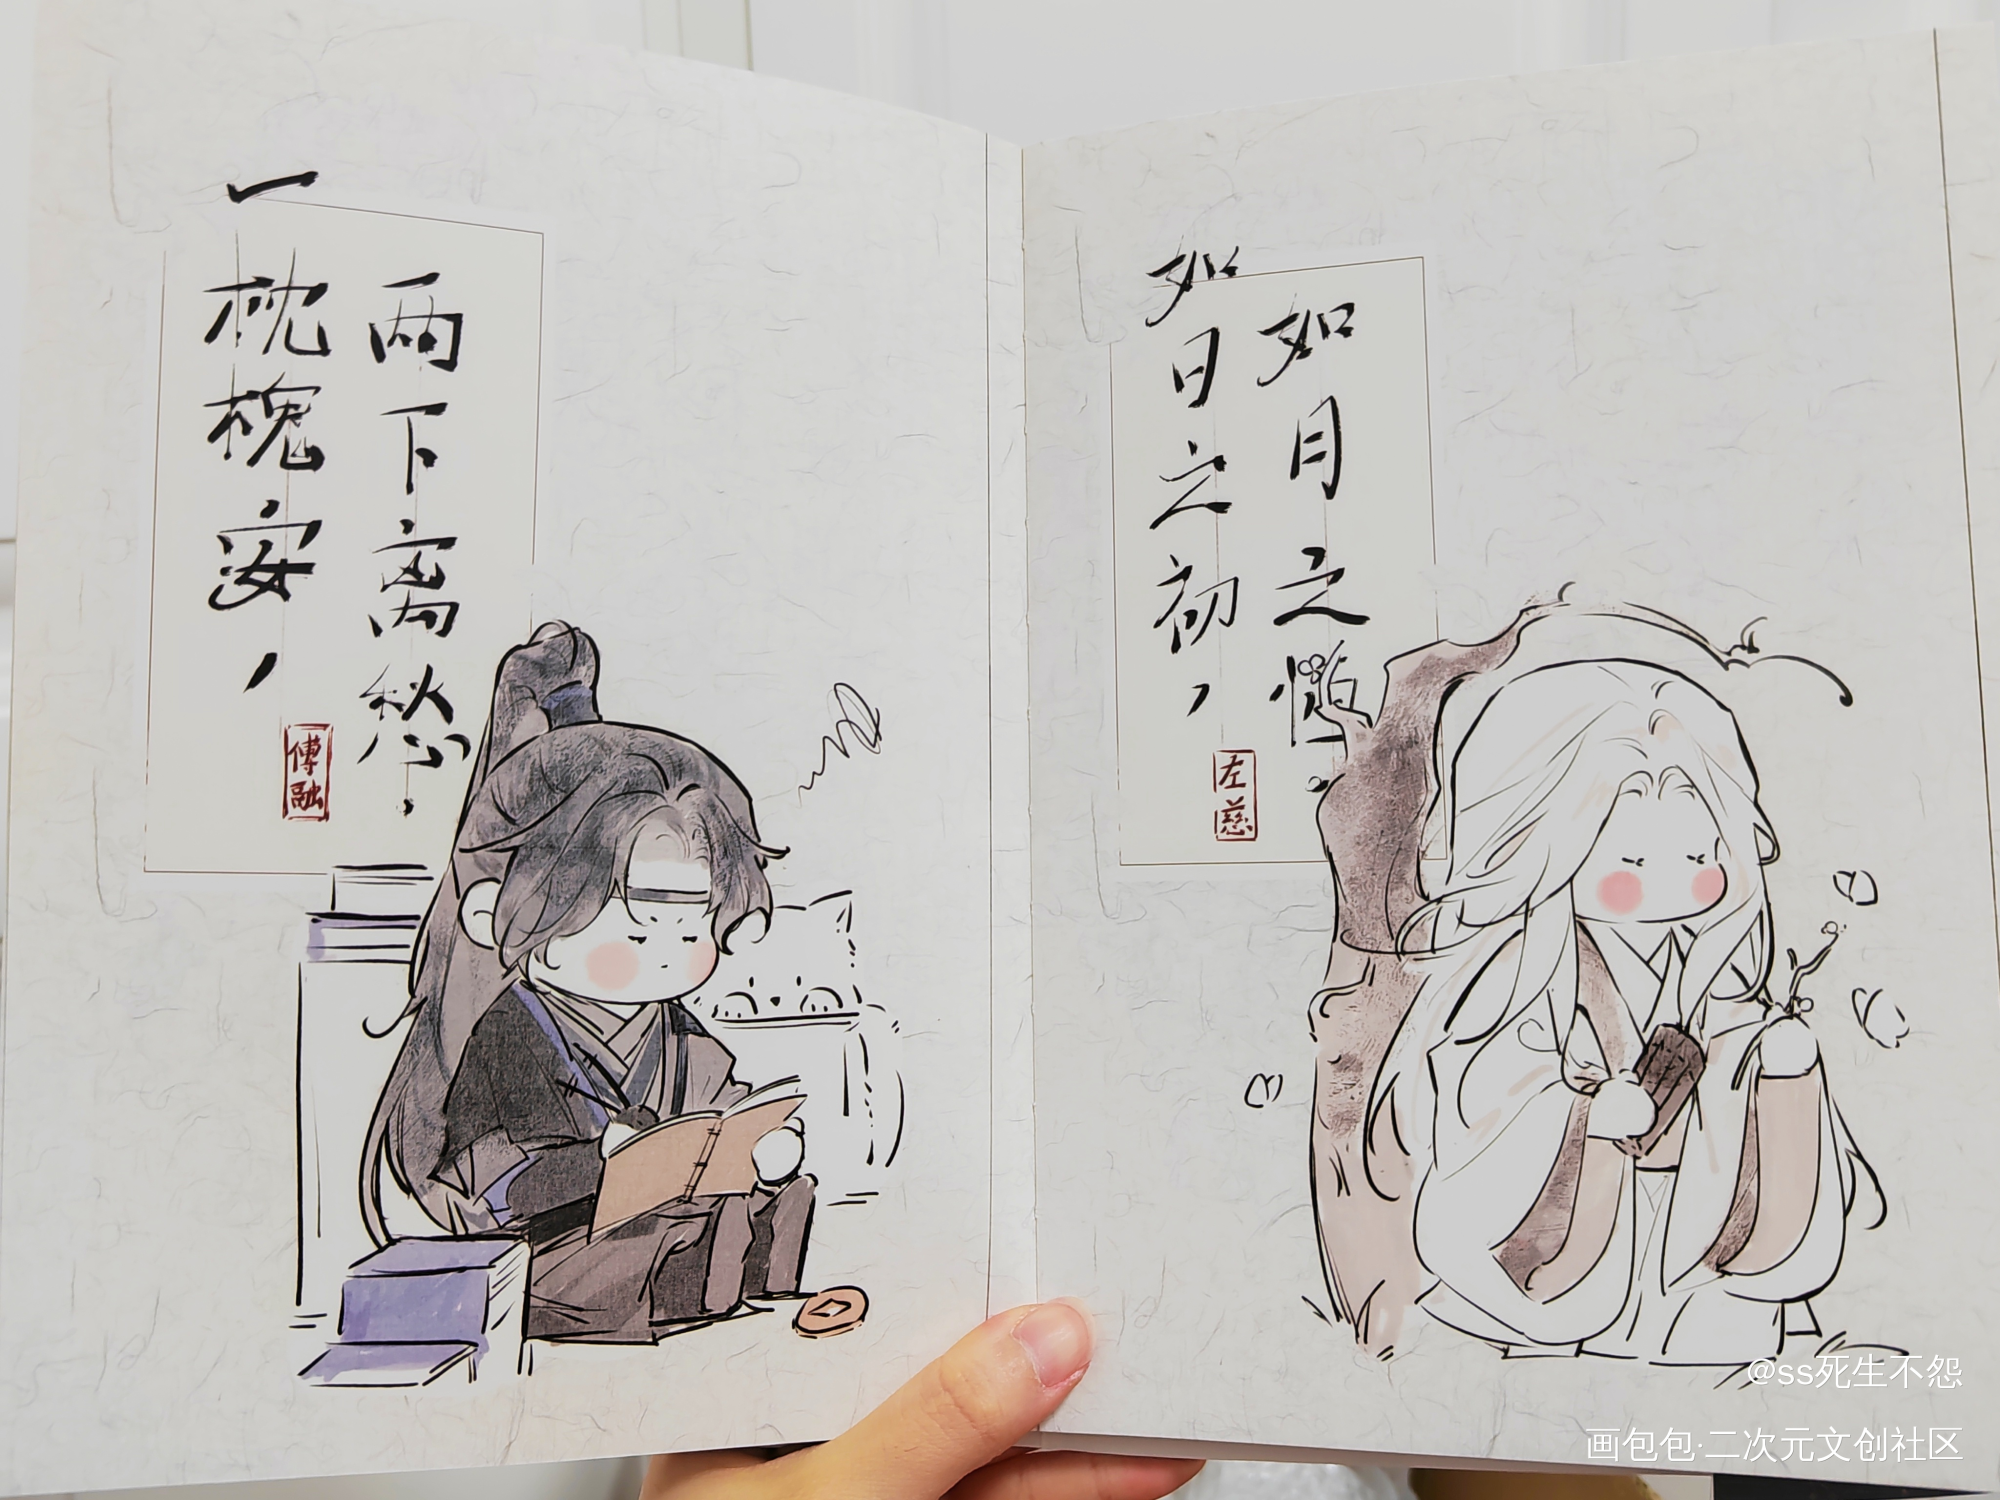 一枕槐安，
两下离愁。
傅融
如日之初，
如月之恒。
左慈
@ss死生不怨
画包包·二次元文创社区